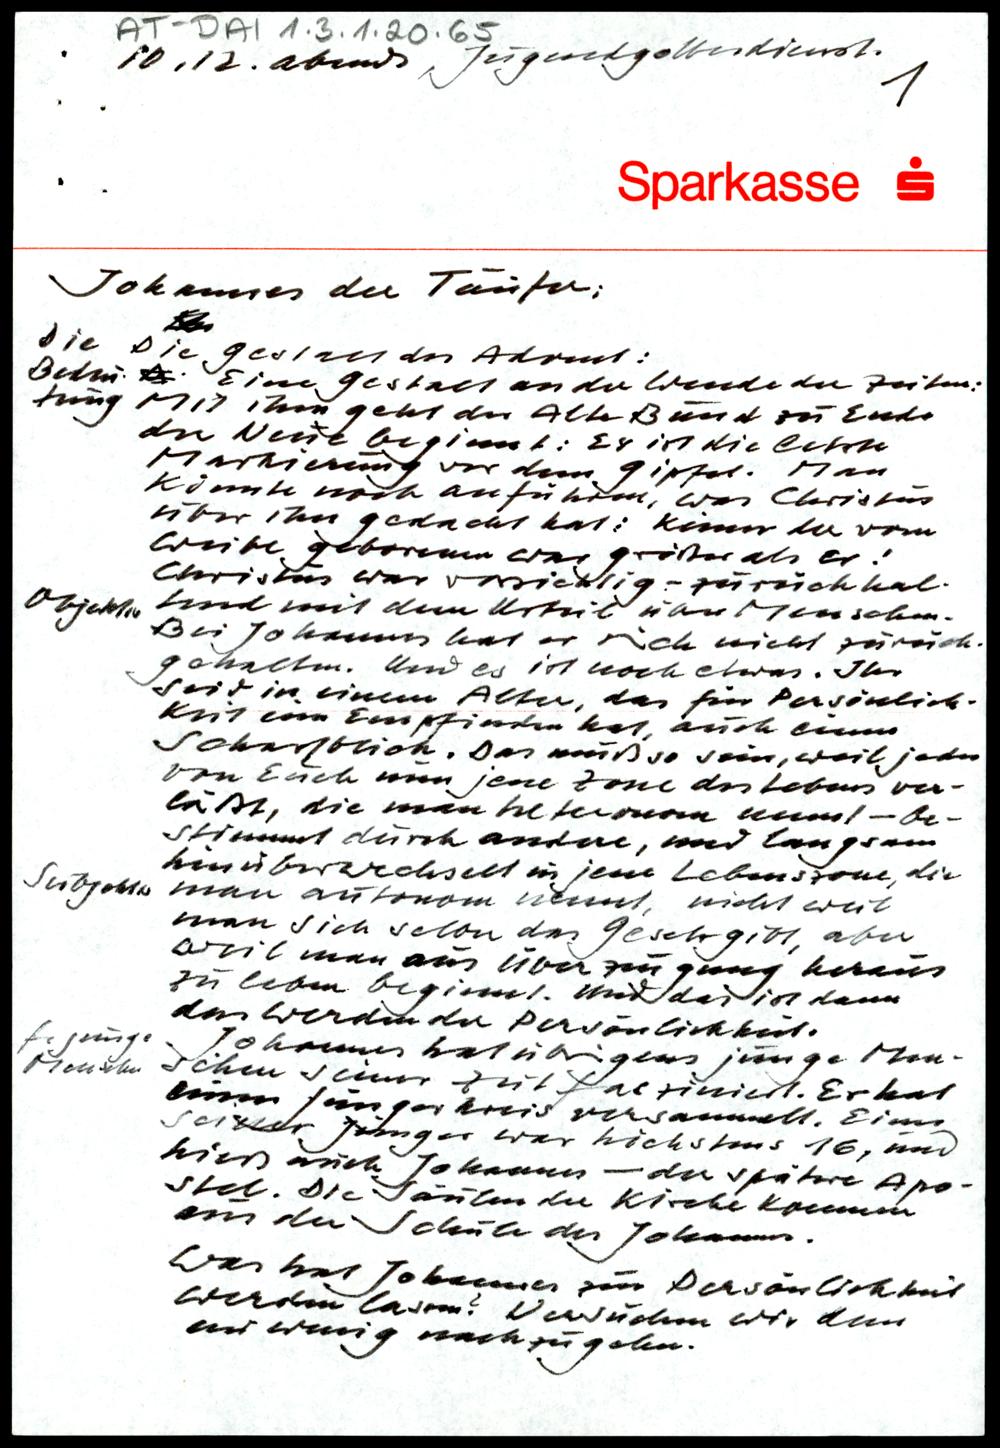 AT-DAI 1.3.1.20.65
10.12. abends, Jugendgottesdienst.
1
Sparkasse
Johannes der Täufer:
Die Bedeu-tung
Die Gestalt des Advent:
Eine Gestalt an der Wende der Zeiten:
Mit ihm geht der Alte Bund zu Ende
der Neue beginnt: Er ist die letzte
Markierung vor dem Gipfel. Man
könnte noch anführen, was Christus
über ihn gedacht hat: Keiner der vom
Weibe geborenen war größer als er!
Christus war vorsichtig - zurückhal-
Objektiv
tend mit dem Urteil über Menschen.
Bei Johannes hat er sich nicht zurück-
gehalten. Und es ist noch etwas. Ihr
seid in einem Alter, das für Persönlich-
keit ein Empfinden hat, auch einen
Scharfblick. Das muß so sein, weil jeder
von Euch nun jene Zone des Lebens ver-
läßt, die man heteronom nennt – be-
stimmt durch andere, und langsam
hinüberwechselt in jene Lebenszone, die
Subjektiv
man autonom nennt, nicht weil
man sich selber das Gesetz gibt, aber
weil man aus Überzeugung heraus
zu leben beginnt. Und das ist dann
das Werden der Persönlichkeit.
f. junge Menschen
Johannes hat übrigens junge Men-
schen seiner Zeit fasziniert. Er hat
einen Jüngerkreis versammelt. Einer
seiner Jünger war höchstens 16, und
hieß auch Johannes – der spätere Apo-
stel. Die Säulen der Kirche kommen
aus der Schule des Johannes.
Was hat Johannes zur Persönlichkeit
werden lassen? Versuchen wir dem
ein wenig nachzugehen.